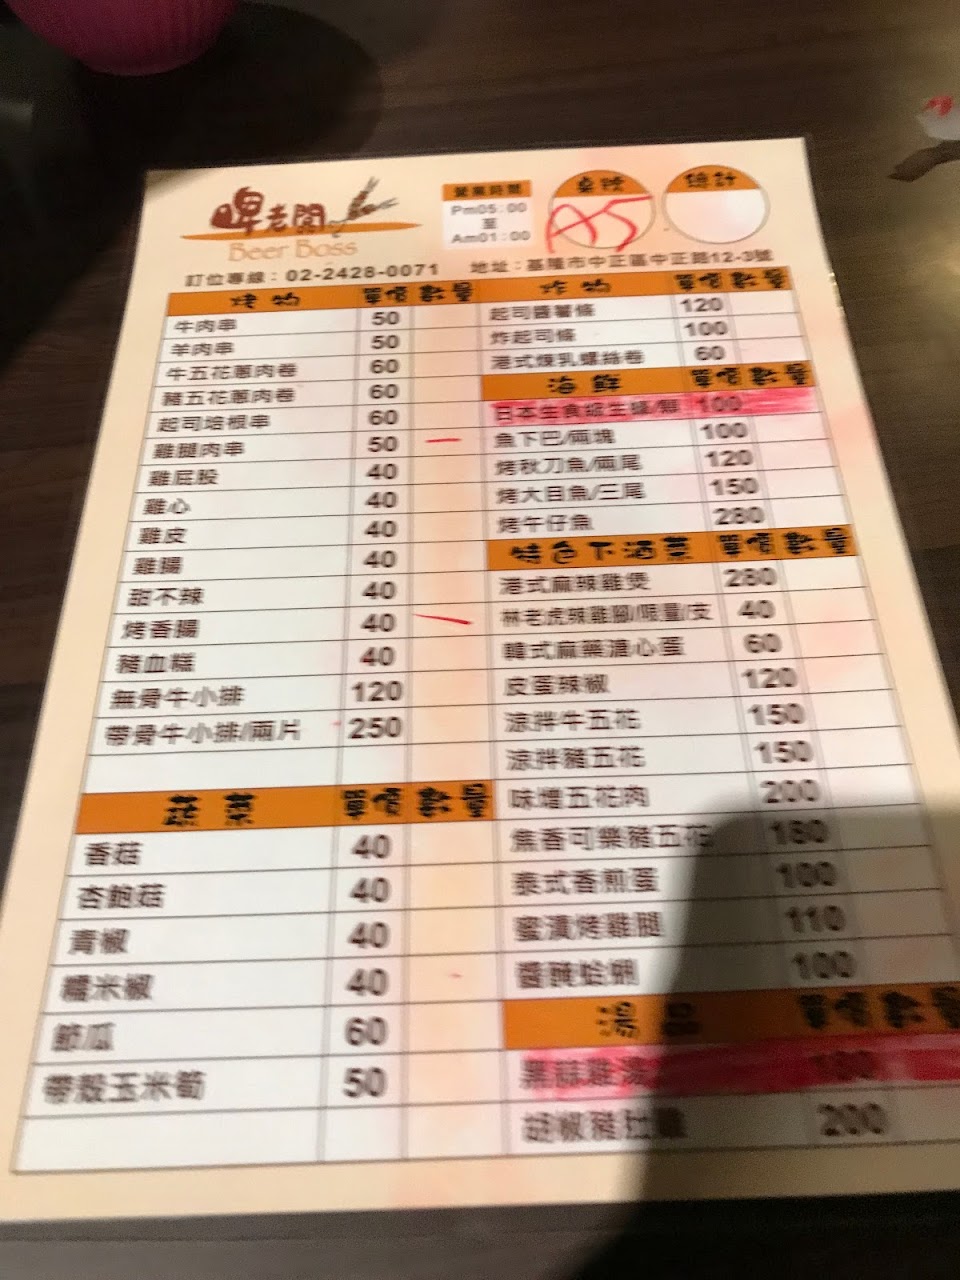 啤老闆
Beer Boss
營業時間
Pm05:00
至
Am01:00
桌號
A5
總計
訂位專線：02-2428-0071
地址：基隆市中正區中正路12-3號
烤物 單價 數量
牛肉串 50
羊肉串 50
牛五花蔥肉卷 60
豬五花蔥肉卷 60
起司培根串 60
雞腿肉串 50 一
雞屁股 40
雞心 40
雞皮 40
雞腸 40
甜不辣 40
烤香腸 40 一
豬血糕 40
無骨牛小排 120
帶骨牛小排/兩片 250
蔬菜 單價 數量
香菇 40
杏鮑菇 40
青椒 40
糯米椒 40
節瓜 60
帶殼玉米筍 50
炸物 單價 數量
起司醬薯條 120
炸起司條 100
港式煉乳螺絲卷 60
海鮮 單價 數量
日本生食級生蠔/顆 100
魚下巴/兩塊 100
烤秋刀魚/兩尾 120
烤大目魚/三尾 150
烤午仔魚 280
特色下酒菜 單價 數量
港式麻辣雞煲 280
林老虎辣雞腳/限量/支 40
韓式麻藥溏心蛋 60
皮蛋辣椒 120
涼拌牛五花 150
涼拌豬五花 150
味增五花肉 200
焦香可樂豬五花 180
泰式香煎蛋 100
蜜漬烤雞腿 110
醬醃蛤蜊 100
湯品 單價 數量
黑蒜雞湯
胡椒豬肚雞 200